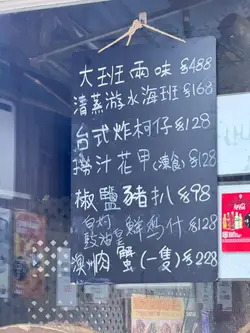 大班 兩味 $488
清蒸游水海班 $168
台式炸柯仔 $128
捞汁花甲 (凍食) $128
椒鹽豬扒 $98
豉油皇 鮮 什 $128
澳州肉蟹 (一隻) $228